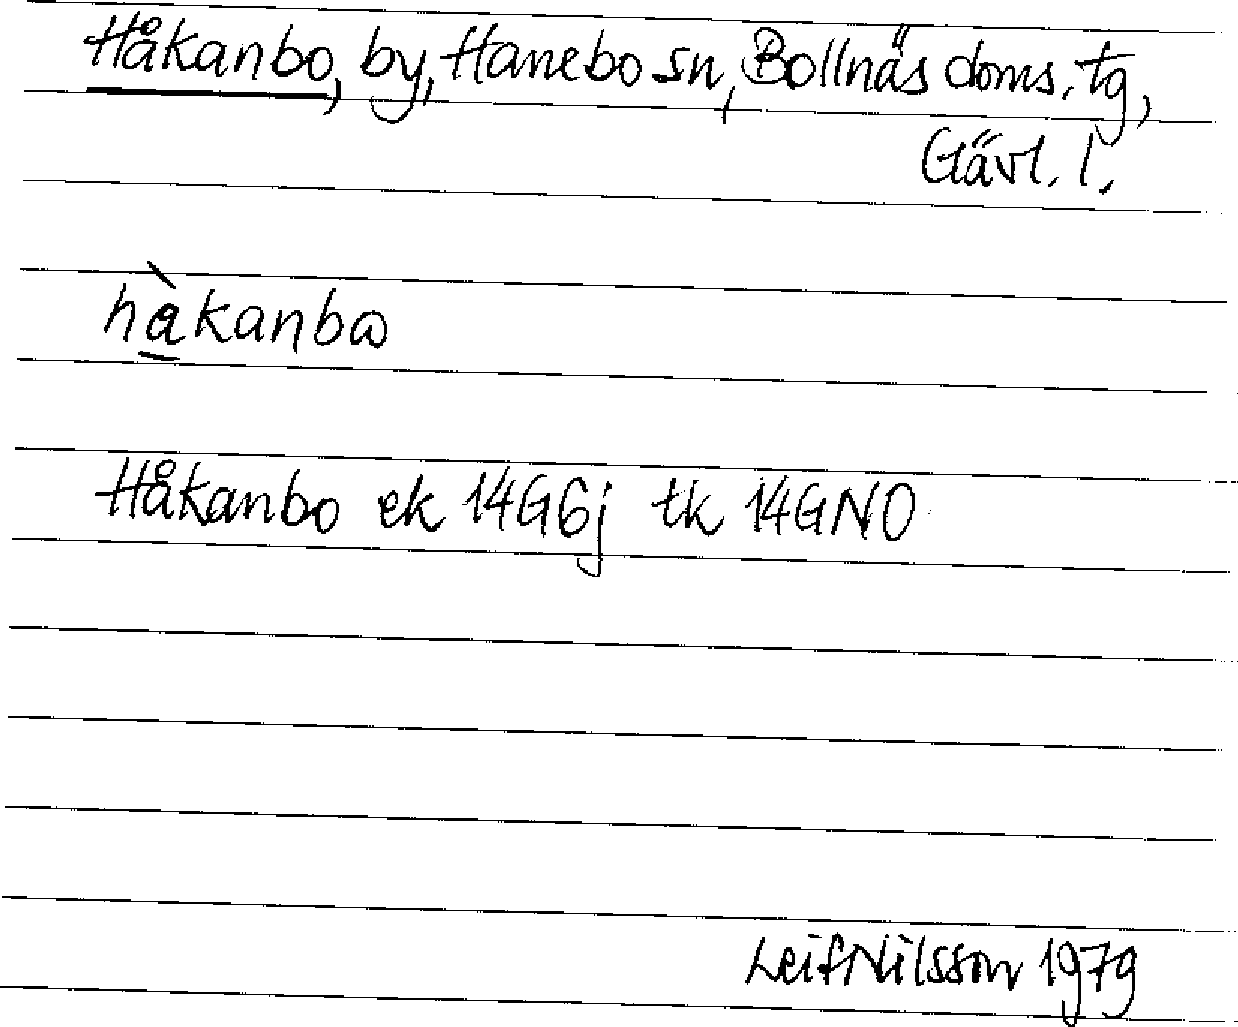 Håkanbo, by, Hanebo sn, Bollnäs doms. tg,
Gävl. l.
hàkanbɷ
Håkanbo ek 14G6j tk 14GNO
Leif Nilsson 1979